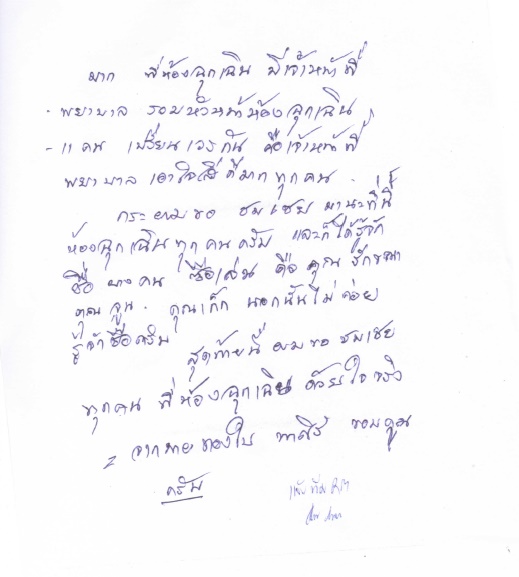 มาก ที่ห้องฉุกเฉิน มีเจ้าหน้าที่
- พยาบาล รวมหัวหน้าห้องฉุกเฉิน
- 11 คน เปลี่ยนเวรกัน คือเจ้าหน้าที่
พยาบาล เอาใจใส่ ดีมากทุกคน .
กระผมขอ ชมเชย มานะที่นี้
ห้องฉุกเฉินทุกคนครับ และก็ได้รู้จัก
ชื่อ บางคน ชื่อเล่น คือ คุณ
คุณ จูน . คุณเก็ก นอกนั้นไม่ค่อย
รู้จักชื่อครับ
สุดท้ายนี้ ผมขอ ชมเชย
ทุกคน ที่ห้องฉุกเฉิน ด้วยใจจริง
= จากนาย ทองใบ ขอบคุณ
ครับ